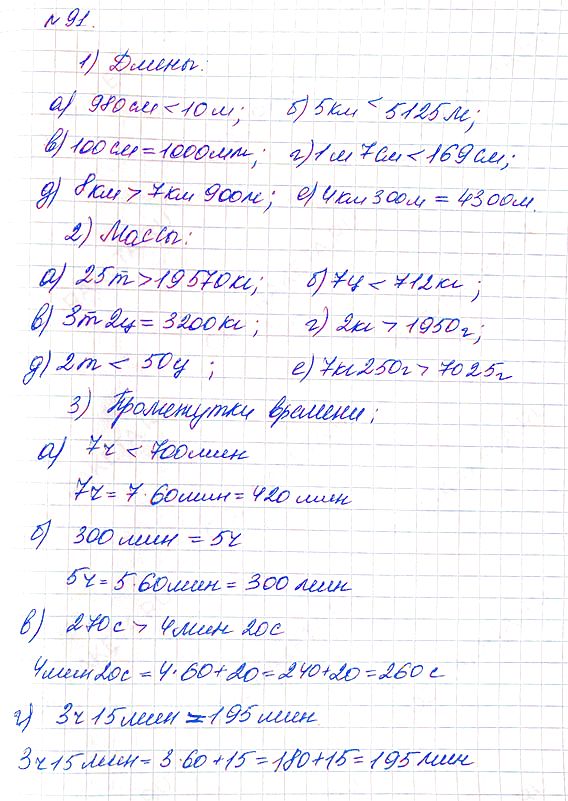 №91.
1) Длины:
а) 980см < 10м; б) 5км < 5125м;
в) 100см = 1000мм; г) 1м 7см < 169см;
д) 8км > 7км 900м; е) 4км 300м = 4300м.
2) Массы:
а) 25т > 19570кг; б) 7ц < 712кг;
в) 3т 2ц = 3200кг; г) 2кг > 1950г;
д) 2т < 50ц; е) 7кг 250г > 7025г
3) Промежутки времени:
а) 7ч < 700мин
7ч = 7·60мин = 420мин
б) 300мин = 5ч
5ч = 5·60мин = 300мин
в) 270с > 4мин 20с
4мин 20с = 4·60+20 = 240+20 = 260с
г) 3ч 15мин = 195мин
3ч 15мин = 3·60+15 = 180+15 = 195мин